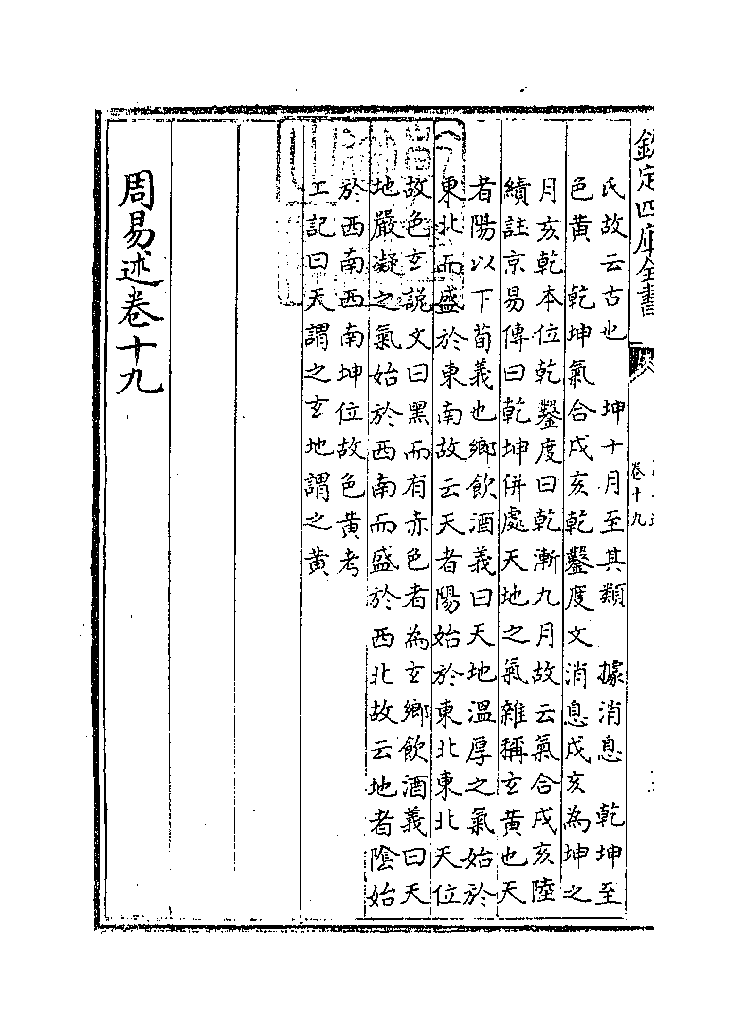 欽定四庫全書
卷十九
氏故云古也　坤十月至其類　據消息　乾坤至
色黃　乾坤氣合戌亥乾鑿度文消息戌亥為坤之
月亥乾本位乾鑿度曰乾漸九月故云氣合戌亥陸
績註京易傳曰乾坤併處天地之氣雜稱玄黃也天
者陽以下荀義也鄉飲酒義曰天地溫厚之氣始於
東北而盛於東南故云天者陽始於東北東北天位
故色玄說文曰黑而有赤色者為玄鄉飲酒義曰天
地嚴凝之氣始於西南而盛於西北故云地者陰始
於西南西南坤位故色黃考
工記曰天謂之玄地謂之黃
周易述卷十九